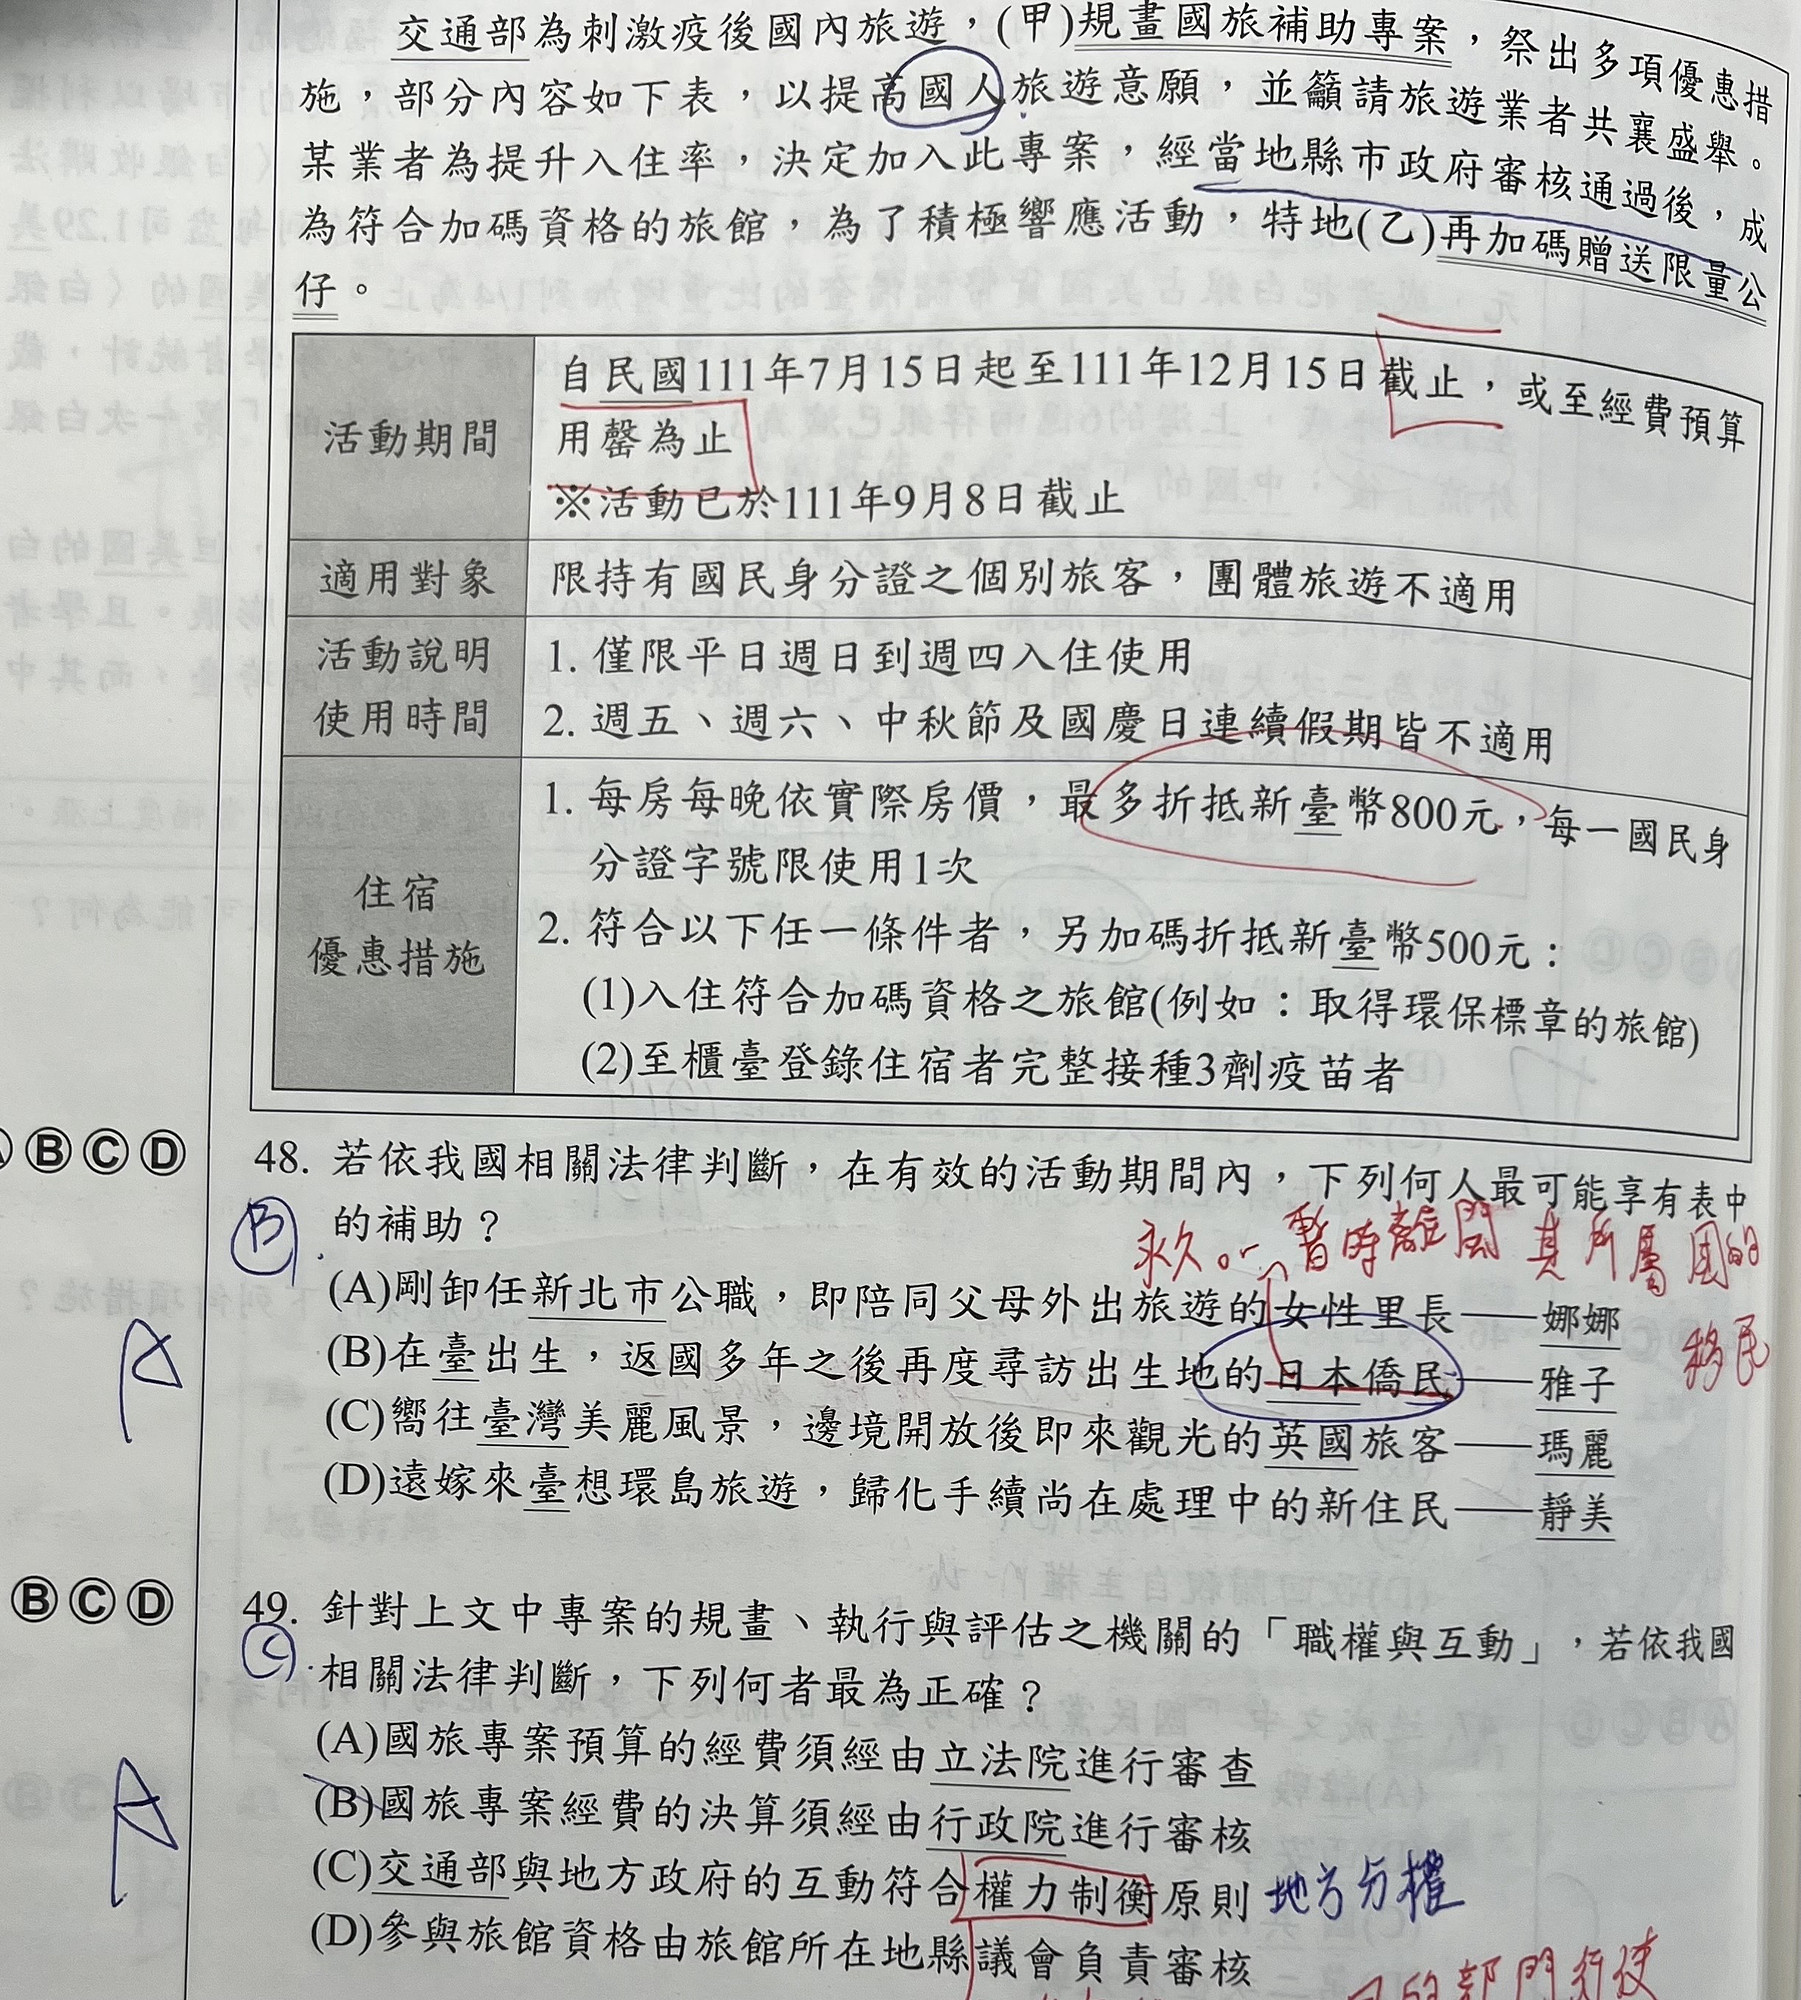 交通部為刺激疫後國內旅遊，(甲)規畫國旅補助專案，祭出多項優惠措
施，部分內容如下表，以提高國人旅遊意願，並籲請旅遊業者共襄盛舉。
某業者為提升入住率，決定加入此專案，經當地縣市政府審核通過後，成
為符合加碼資格的旅館，為了積極響應活動，特地(乙)再加碼贈送限量公
仔。
活動期間
自民國111年7月15日起至111年12月15日截止，或至經費預算
用罄為止
※活動已於111年9月8日截止
適用對象
限持有國民身分證之個別旅客，團體旅遊不適用
活動說明
使用時間
1. 僅限平日週日到週四入住使用
2. 週五、週六、中秋節及國慶日連續假期皆不適用
住宿
優惠措施
1. 每房每晚依實際房價，最多折抵新臺幣800元，每一國民身
分證字號限使用1次
2. 符合以下任一條件者，另加碼折抵新臺幣500元：
(1)入住符合加碼資格之旅館(例如：取得環保標章的旅館)
(2)至櫃臺登錄住宿者完整接種3劑疫苗者
ⒷⒸⒹ
48. 若依我國相關法律判斷，在有效的活動期間內，下列何人最可能享有表中
的補助？
B
永久or暫時離開其所屬國的
移民
(A)剛卸任新北市公職，即陪同父母外出旅遊的女性里長——娜娜
(B)在臺出生，返國多年之後再度尋訪出生地的日本僑民——雅子
(C)嚮往臺灣美麗風景，邊境開放後即來觀光的英國旅客——瑪麗
(D)遠嫁來臺想環島旅遊，歸化手續尚在處理中的新住民——靜美
A
ⒷⒸⒹ
49. 針對上文中專案的規畫、執行與評估之機關的「職權與互動」，若依我國
相關法律判斷，下列何者最為正確？
C
(A)國旅專案預算的經費須經由立法院進行審查
(B)國旅專案經費的決算須經由行政院進行審核
(C)交通部與地方政府的互動符合權力制衡原則 地方分權
(D)參與旅館資格由旅館所在地縣議會負責審核
A
部門行使